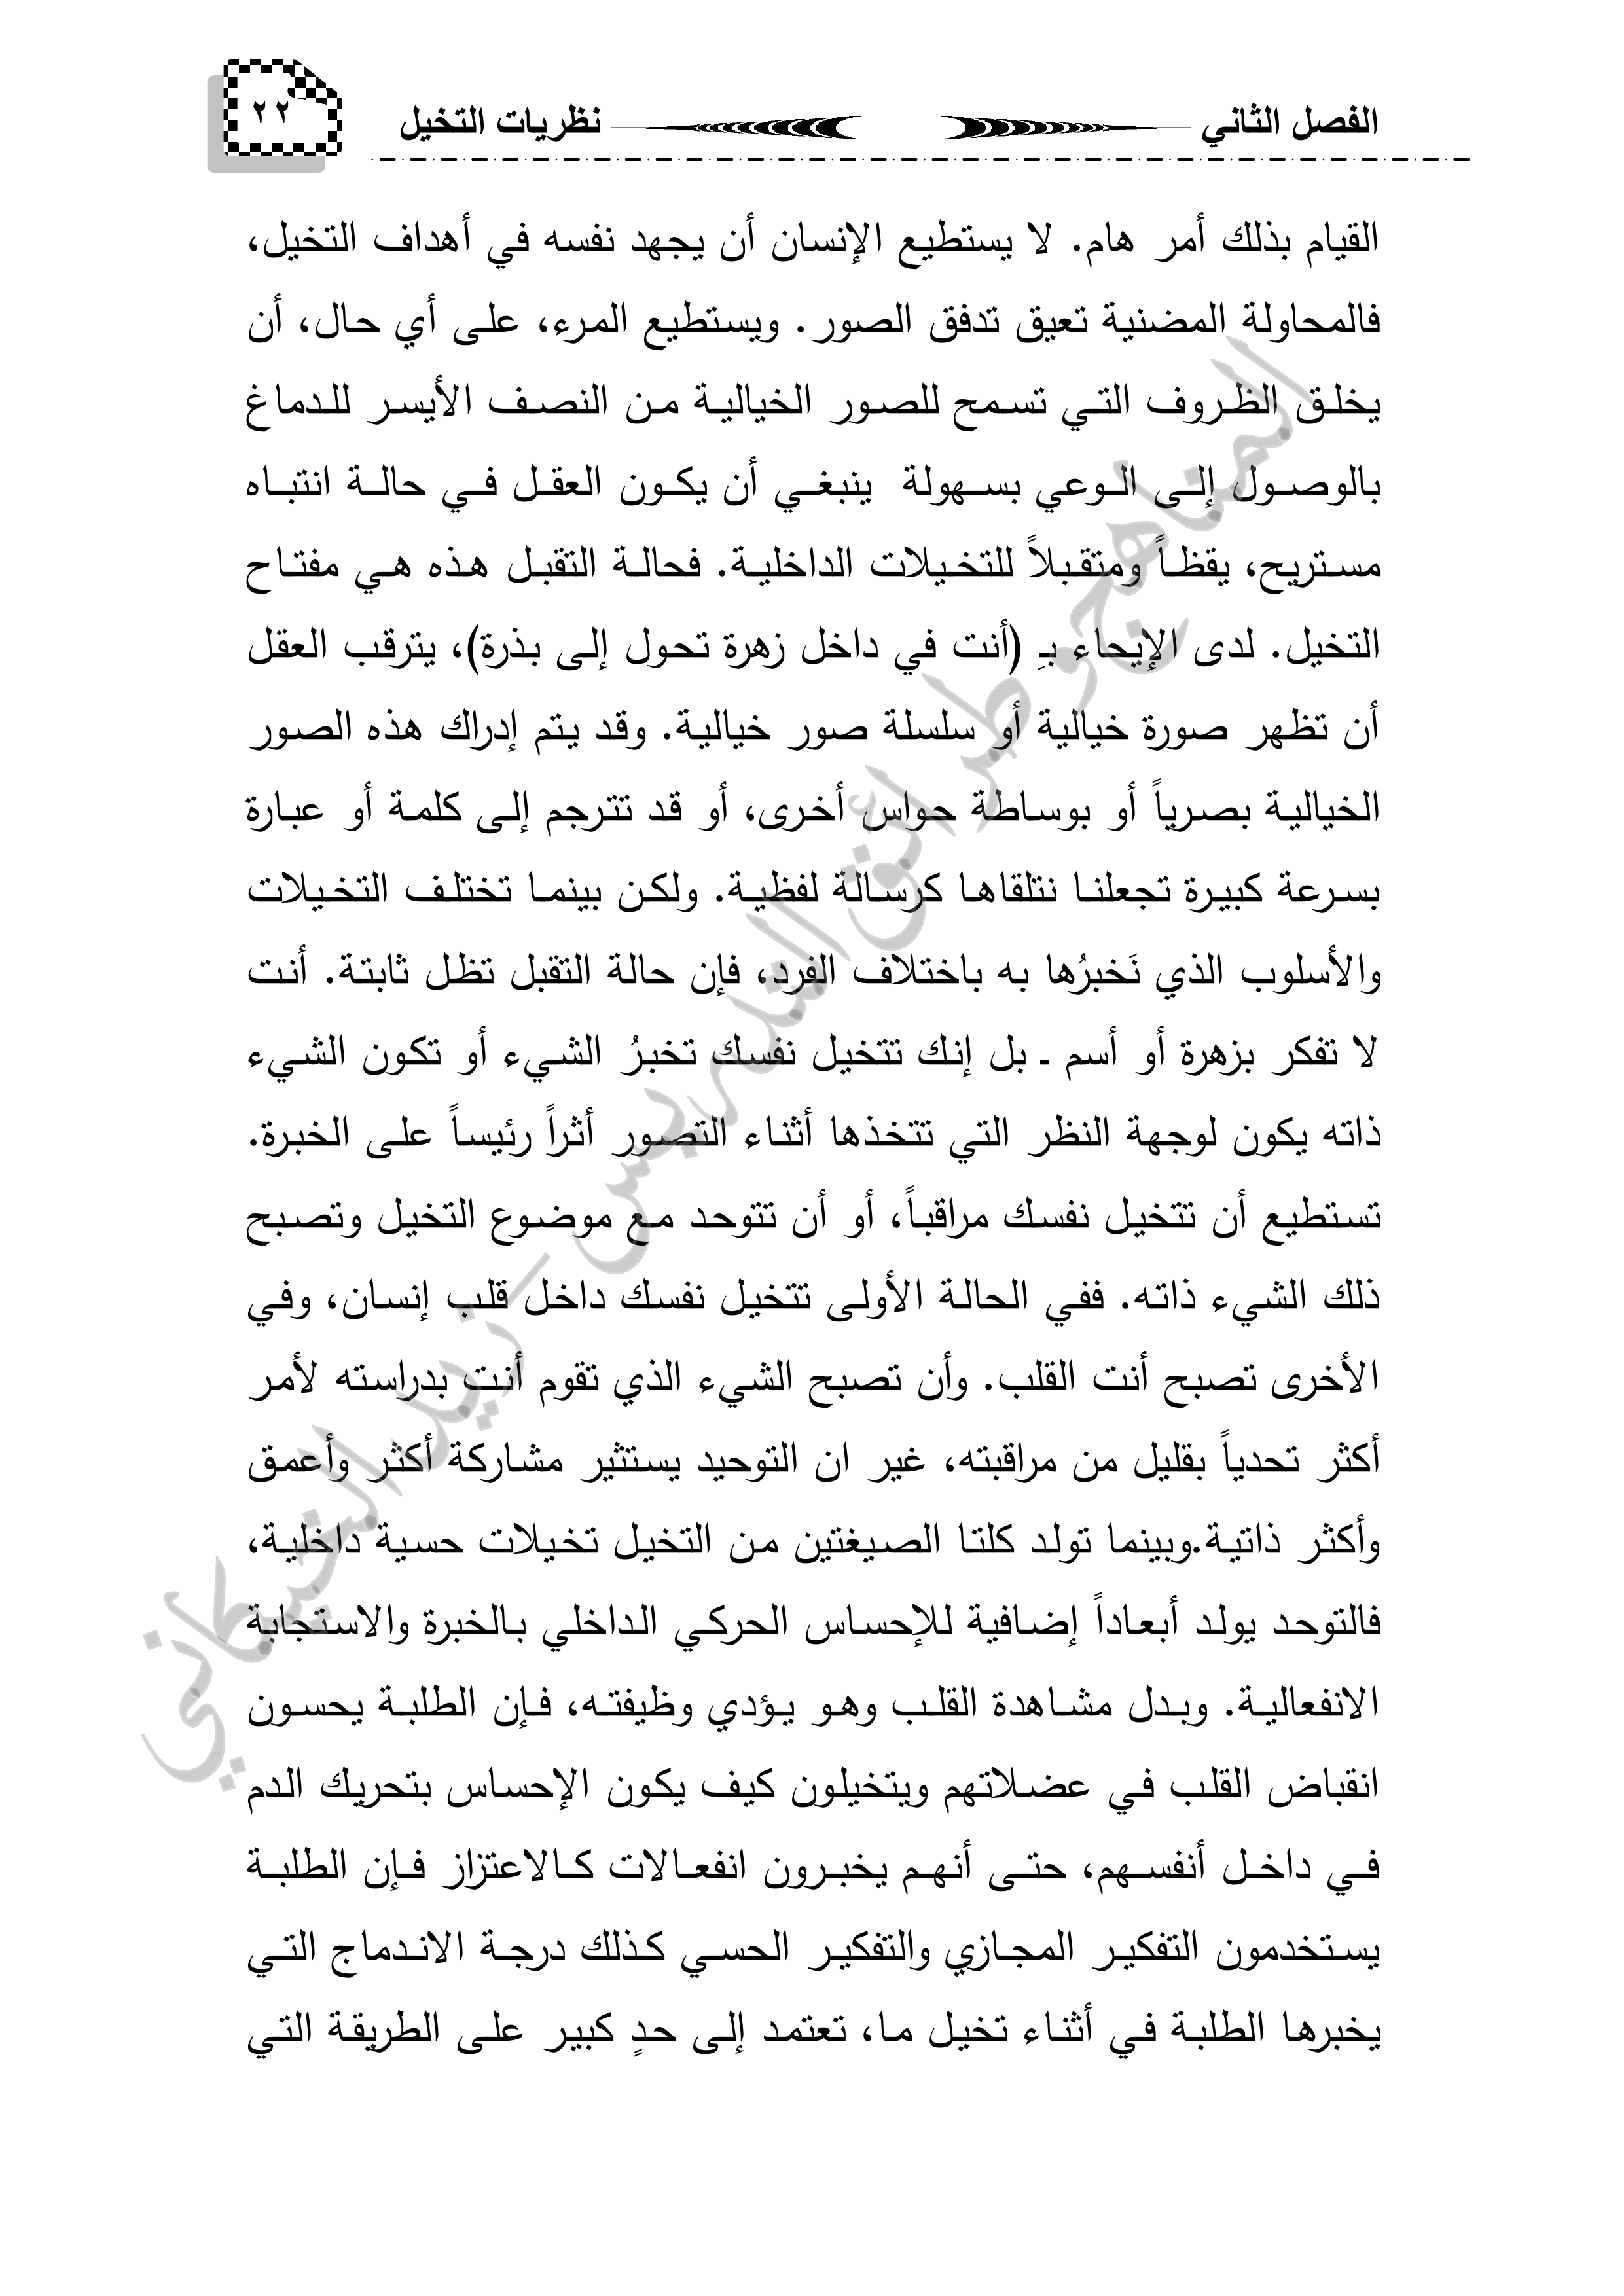 الفصل الثاني نظريات التخيل ٢٢
القيام بذلك أمر هام. لا يستطيع الإنسان أن يجهد نفسه في أهداف التخيل،
فالمحاولة المضنية تعيق تدفق الصور. ويستطيع المرء، على أي حال، أن
يخلق الظروف التي تسمح للصور الخيالية من النصف الأيسر للدماغ
بالوصول إلى الوعي بسهولة ينبغي أن يكون العقل في حالة انتباه
مستريح، يقظاً ومتقبلاً للتخيلات الداخلية. فحالة التقبل هذه هي مفتاح
التخيل. لدى الإيحاء بـِ (أنت في داخل زهرة تحول إلى بذرة)، يترقب العقل
أن تظهر صورة خيالية أو سلسلة صور خيالية. وقد يتم إدراك هذه الصور
الخيالية بصرياً أو بوساطة حواس أخرى، أو قد تترجم إلى كلمة أو عبارة
بسرعة كبيرة تجعلنا نتلقاها كرسالة لفظية. ولكن بينما تختلف التخيلات
والأسلوب الذي نَخبرُها به باختلاف الفرد، فإن حالة التقبل تظل ثابتة. أنت
لا تفكر بزهرة أو أسم ـ بل إنك تتخيل نفسك تخبرُ الشيء أو تكون الشيء
ذاته يكون لوجهة النظر التي تتخذها أثناء التصور أثراً رئيساً على الخبرة.
تستطيع أن تتخيل نفسك مراقباً، أو أن تتوحد مع موضوع التخيل وتصبح
ذلك الشيء ذاته. ففي الحالة الأولى تتخيل نفسك داخل قلب إنسان، وفي
الأخرى تصبح أنت القلب. وأن تصبح الشيء الذي تقوم أنت بدراسته لأمر
أكثر تحدياً بقليل من مراقبته، غير ان التوحيد يستثير مشاركة أكثر وأعمق
وأكثر ذاتية.وبينما تولد كلتا الصيغتين من التخيل تخيلات حسية داخلية،
فالتوحد يولد أبعاداً إضافية للإحساس الحركي الداخلي بالخبرة والاستجابة
الانفعالية. وبدل مشاهدة القلب وهو يؤدي وظيفته، فإن الطلبة يحسون
انقباض القلب في عضلاتهم ويتخيلون كيف يكون الإحساس بتحريك الدم
في داخل أنفسهم، حتى أنهم يخبرون انفعالات كالاعتزاز فإن الطلبة
يستخدمون التفكير المجازي والتفكير الحسي كذلك درجة الاندماج التي
يخبرها الطلبة في أثناء تخيل ما، تعتمد إلى حدٍ كبير على الطريقة التي
المناهج وطرائق التدريس - زيد الخيكاني